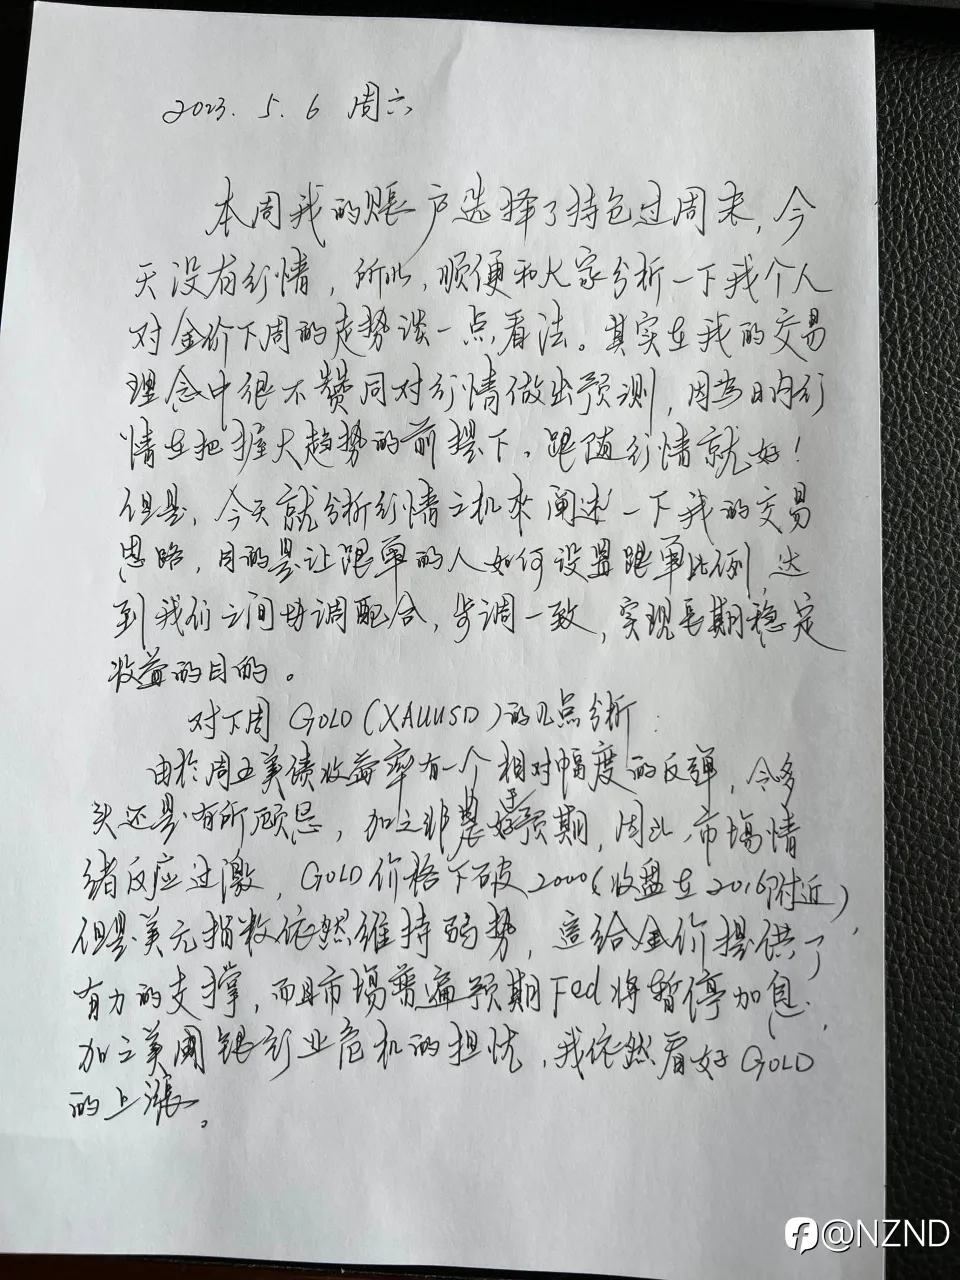 2023. 5. 6 周六
本周我的账户选择了持仓过周末,今
天没有行情,所以,顺便和大家分析一下我个人
对金价下周的走势谈一点看法。其实在我的交易
理念中很不赞同对行情做出预测,因为日内行
情在把握大趋势的前提下,跟随行情就好!
但是,今天就分析行情之机来阐述一下我的交易
思路,目的是让跟单的人如何设置跟单比例,达
到我们之间协调配合,步调一致,实现長期稳定
收益的目的。
对下周 GOLD(XAUUSD)的几点分析:
由於周五美债收益率有一个相对幅度的反弹,令多
头还是有所顾忌,加之非農好于预期,因此,市場情
绪反应过激,GOLD价格下破2000(收盘在2016附近)
但是美元指数依然维持弱势,這给金价提供了
有力的支撑,而且市場普遍预期Fed将暂停加息,
加之美國银行业危机的担忧,我依然看好GOLD
的上漲。
@NZND